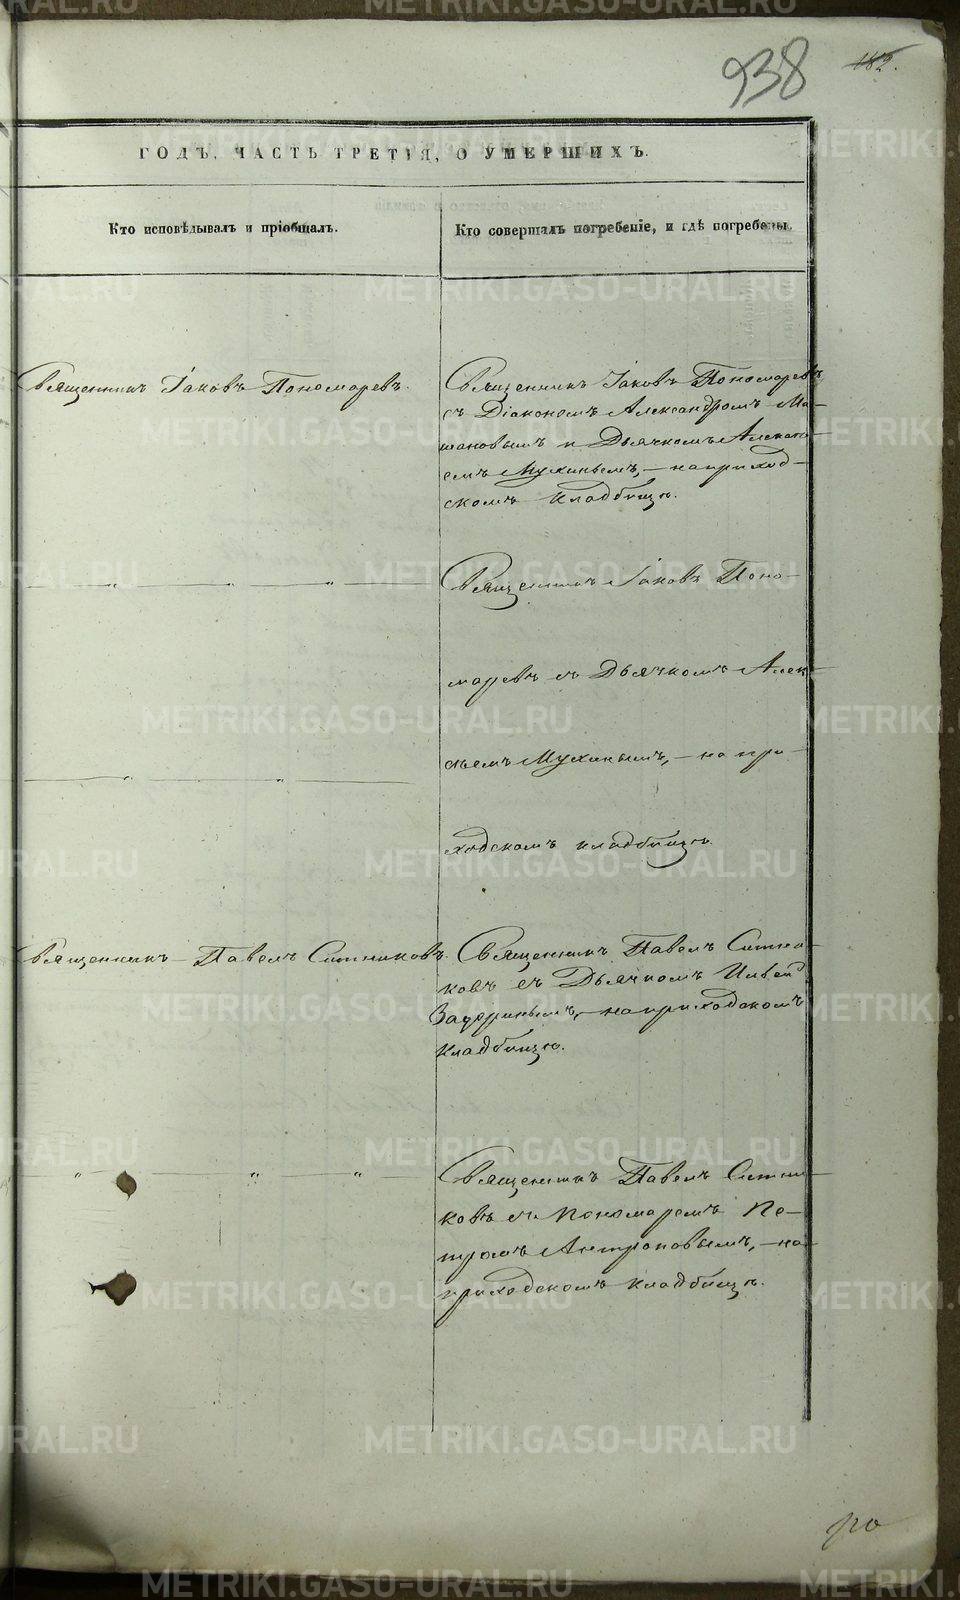 938
182.
ГОДЪ, ЧАСТЬ ТРЕТІЯ, О УМЕРШИХЪ.
Кто исповѣдывалъ и пріобщалъ.
Кто совершалъ погребеніе, и гдѣ погребены.
Священникъ Іаковъ Пономаревъ.
Священникъ Іаковъ Пономаревъ
съ Діакономъ Александромъ Ма-
шановымъ и Дьячкомъ Алексѣ-
емъ Мухинымъ, – на приход-
скомъ кладбищѣ.
— " — " — " —
Священникъ Іаковъ Поно-
маревъ съ Дьячкомъ Алек-
сѣемъ Мухинымъ, – на при-
— " — " —
ходскомъ кладбищѣ.
Священникъ Павелъ Ситниковъ.
Священникъ Павелъ Ситни-
ковъ съ Дьячкомъ
на приходскомъ
кладбищѣ.
" — " — " —
Священникъ Павелъ Ситни-
ковъ съ Пономаремъ Пе-
тромъ Антроповымъ, – на
приходскомъ кладбищѣ.
METRIKI.GASO-URAL.RU